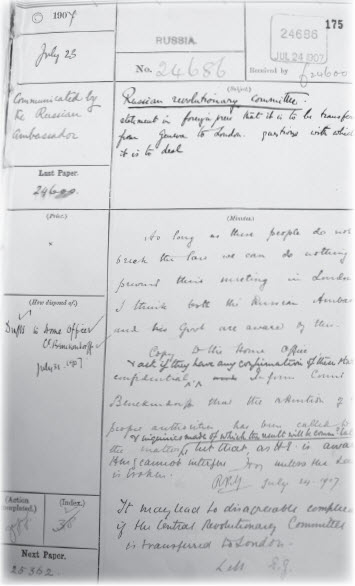 © 1907
RUSSIA.
24686
JUL 24 1907
175
July 23
No. 24686
Received by
24600
Communicated by
the Russian
Ambassador
(Subject.)
Russian revolutionary committee.
Statement in foreign press that it is to be transfer
from Geneva to London. questions with which
it is to deal
Last Paper.
(Print.)
(Minutes.)
As long as these people do not
break the law we can do nothing
prevent their meeting in London
I think both the Russian Ambas
and his Govt are aware of this.
(How disposed of.)
Drafts
Home Office
Ct Benckendorff
July
Copy to the Home Office
& ask if they have any confirmation of this
confidential
Inform Count
Benckendorff that the attention of
proper authorities has been called to
& inquiries made of which the result will be
the matter, but that, as HE is aware
cannot interfere unless the law
is broken.
July 24 1907
(Action completed.)
(Index.)
It may lead to disagreeable complica
if the Central Revolutionary Committee
is transferred to London.
E.G.
Next Paper.
25362